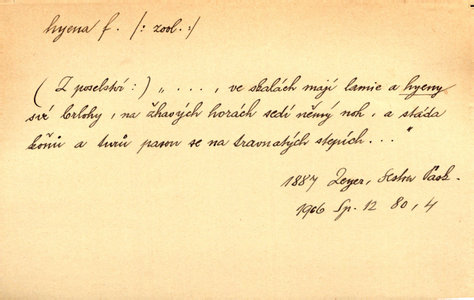 hyena f. /: zool. :/
( Z poselství : ) „ . . . , ve skalách mají lamie a hyeny
své brlohy, na žhavých horách sedí němý noh, a stáda
koňů a turů pasou se na travnatých stepích . . . "
1887 Zeyer,
1906 Sp. 12 80, 4